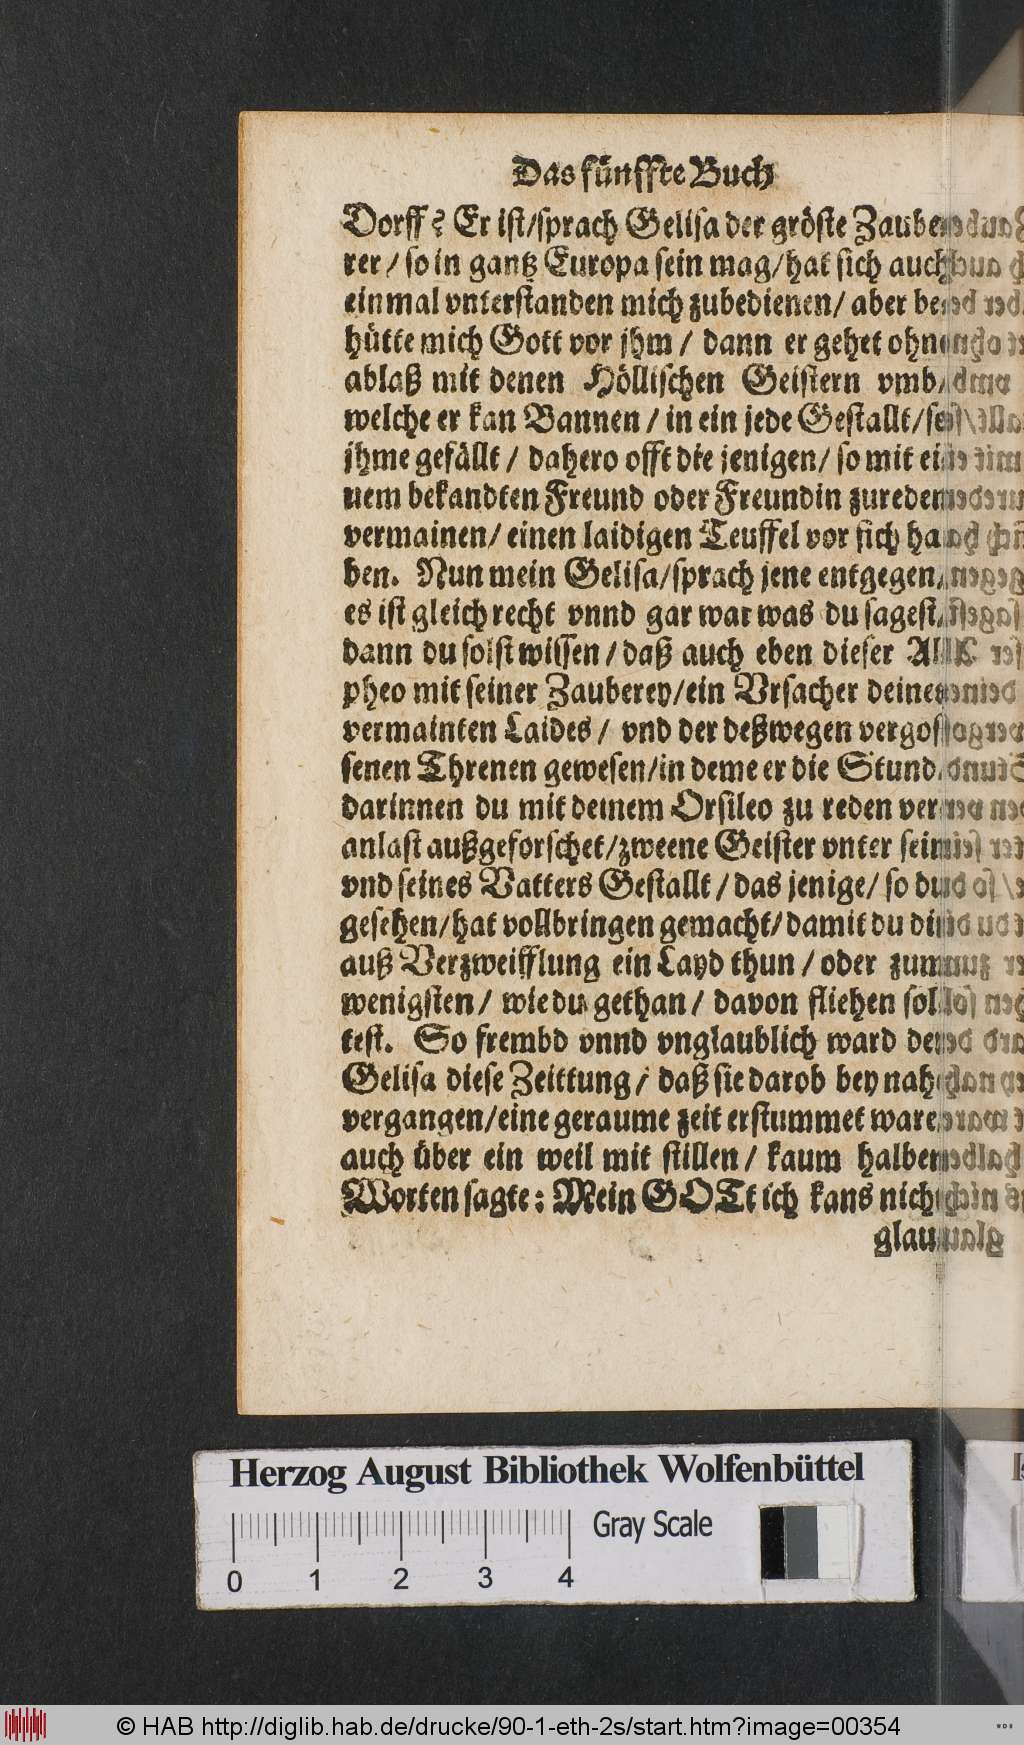 Das fünffte Buch
Dorff? Er ist/sprach Gelisa der gröste Zaube-
rer / so in gantz Europa sein mag/hat sich auch
einmal vnterstanden mich zubedienen/ aber be-
hütte mich Gott vor jhm / dann er gehet ohn
ablaß mit denen Höllischen Geistern vmb/
welche er kan Bannen / in ein jede Gestallt/so
jhme gefällt / dahero offt die jenigen/ so mit ei-
nem bekandten Freund oder Freundin zureden
vermainen/ einen laidigen Teuffel vor sich ha-
ben. Nun mein Gelisa/sprach jene entgegen/
es ist gleich recht vnnd gar war was du sagest/
dann du solst wissen / daß auch eben dieser Al-
pheo mit seiner Zauberey/ein Vrsacher deines
vermainten Laides / vnd der deßwegen vergos-
senen Threnen gewesen/in deme er die Stund/
darinnen du mit deinem Orsileo zu reden ver-
anlast außgeforschet/zweene Geister vnter sein
vnd seines Vatters Gestallt / das jenige/ so du
gesehen/hat vollbringen gemacht/damit du dir
auß Verzweifflung ein Layd thun / oder zum
wenigsten / wie du gethan / davon fliehen sol-
test. So frembd vnnd vnglaublich ward der
Gelisa diese Zeittung / daß sie darob bey nahe
vergangen/eine geraume zeit erstummet ware/
auch über ein weil mit stillen / kaum halben
Worten sagte: Mein GOTt ich kans nicht
glau-
Herzog August Bibliothek Wolfenbüttel
Gray Scale
0 1 2 3 4
© HAB http://diglib.hab.de/drucke/90-1-eth-2s/start.htm?image=00354